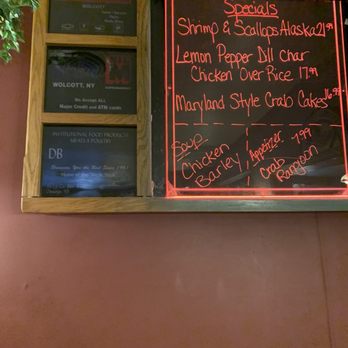 WOLCOTT, NY
We Accept ALL
Major Credit and ATM cards
INSTITUTIONAL FOOD PRODUCTS
MEATS & POULTRY
DB
Specials
Shrimp & Scallops Alaska 21.99
Lemon Pepper Dill Char
Chicken Over Rice 17.99
Maryland Style Crab Cakes 16.99
Soup
Chicken
Barley
Appetizer 7.99
Crab
Rangoon